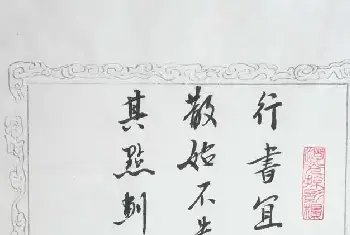 行書宜
散始不失
其點制